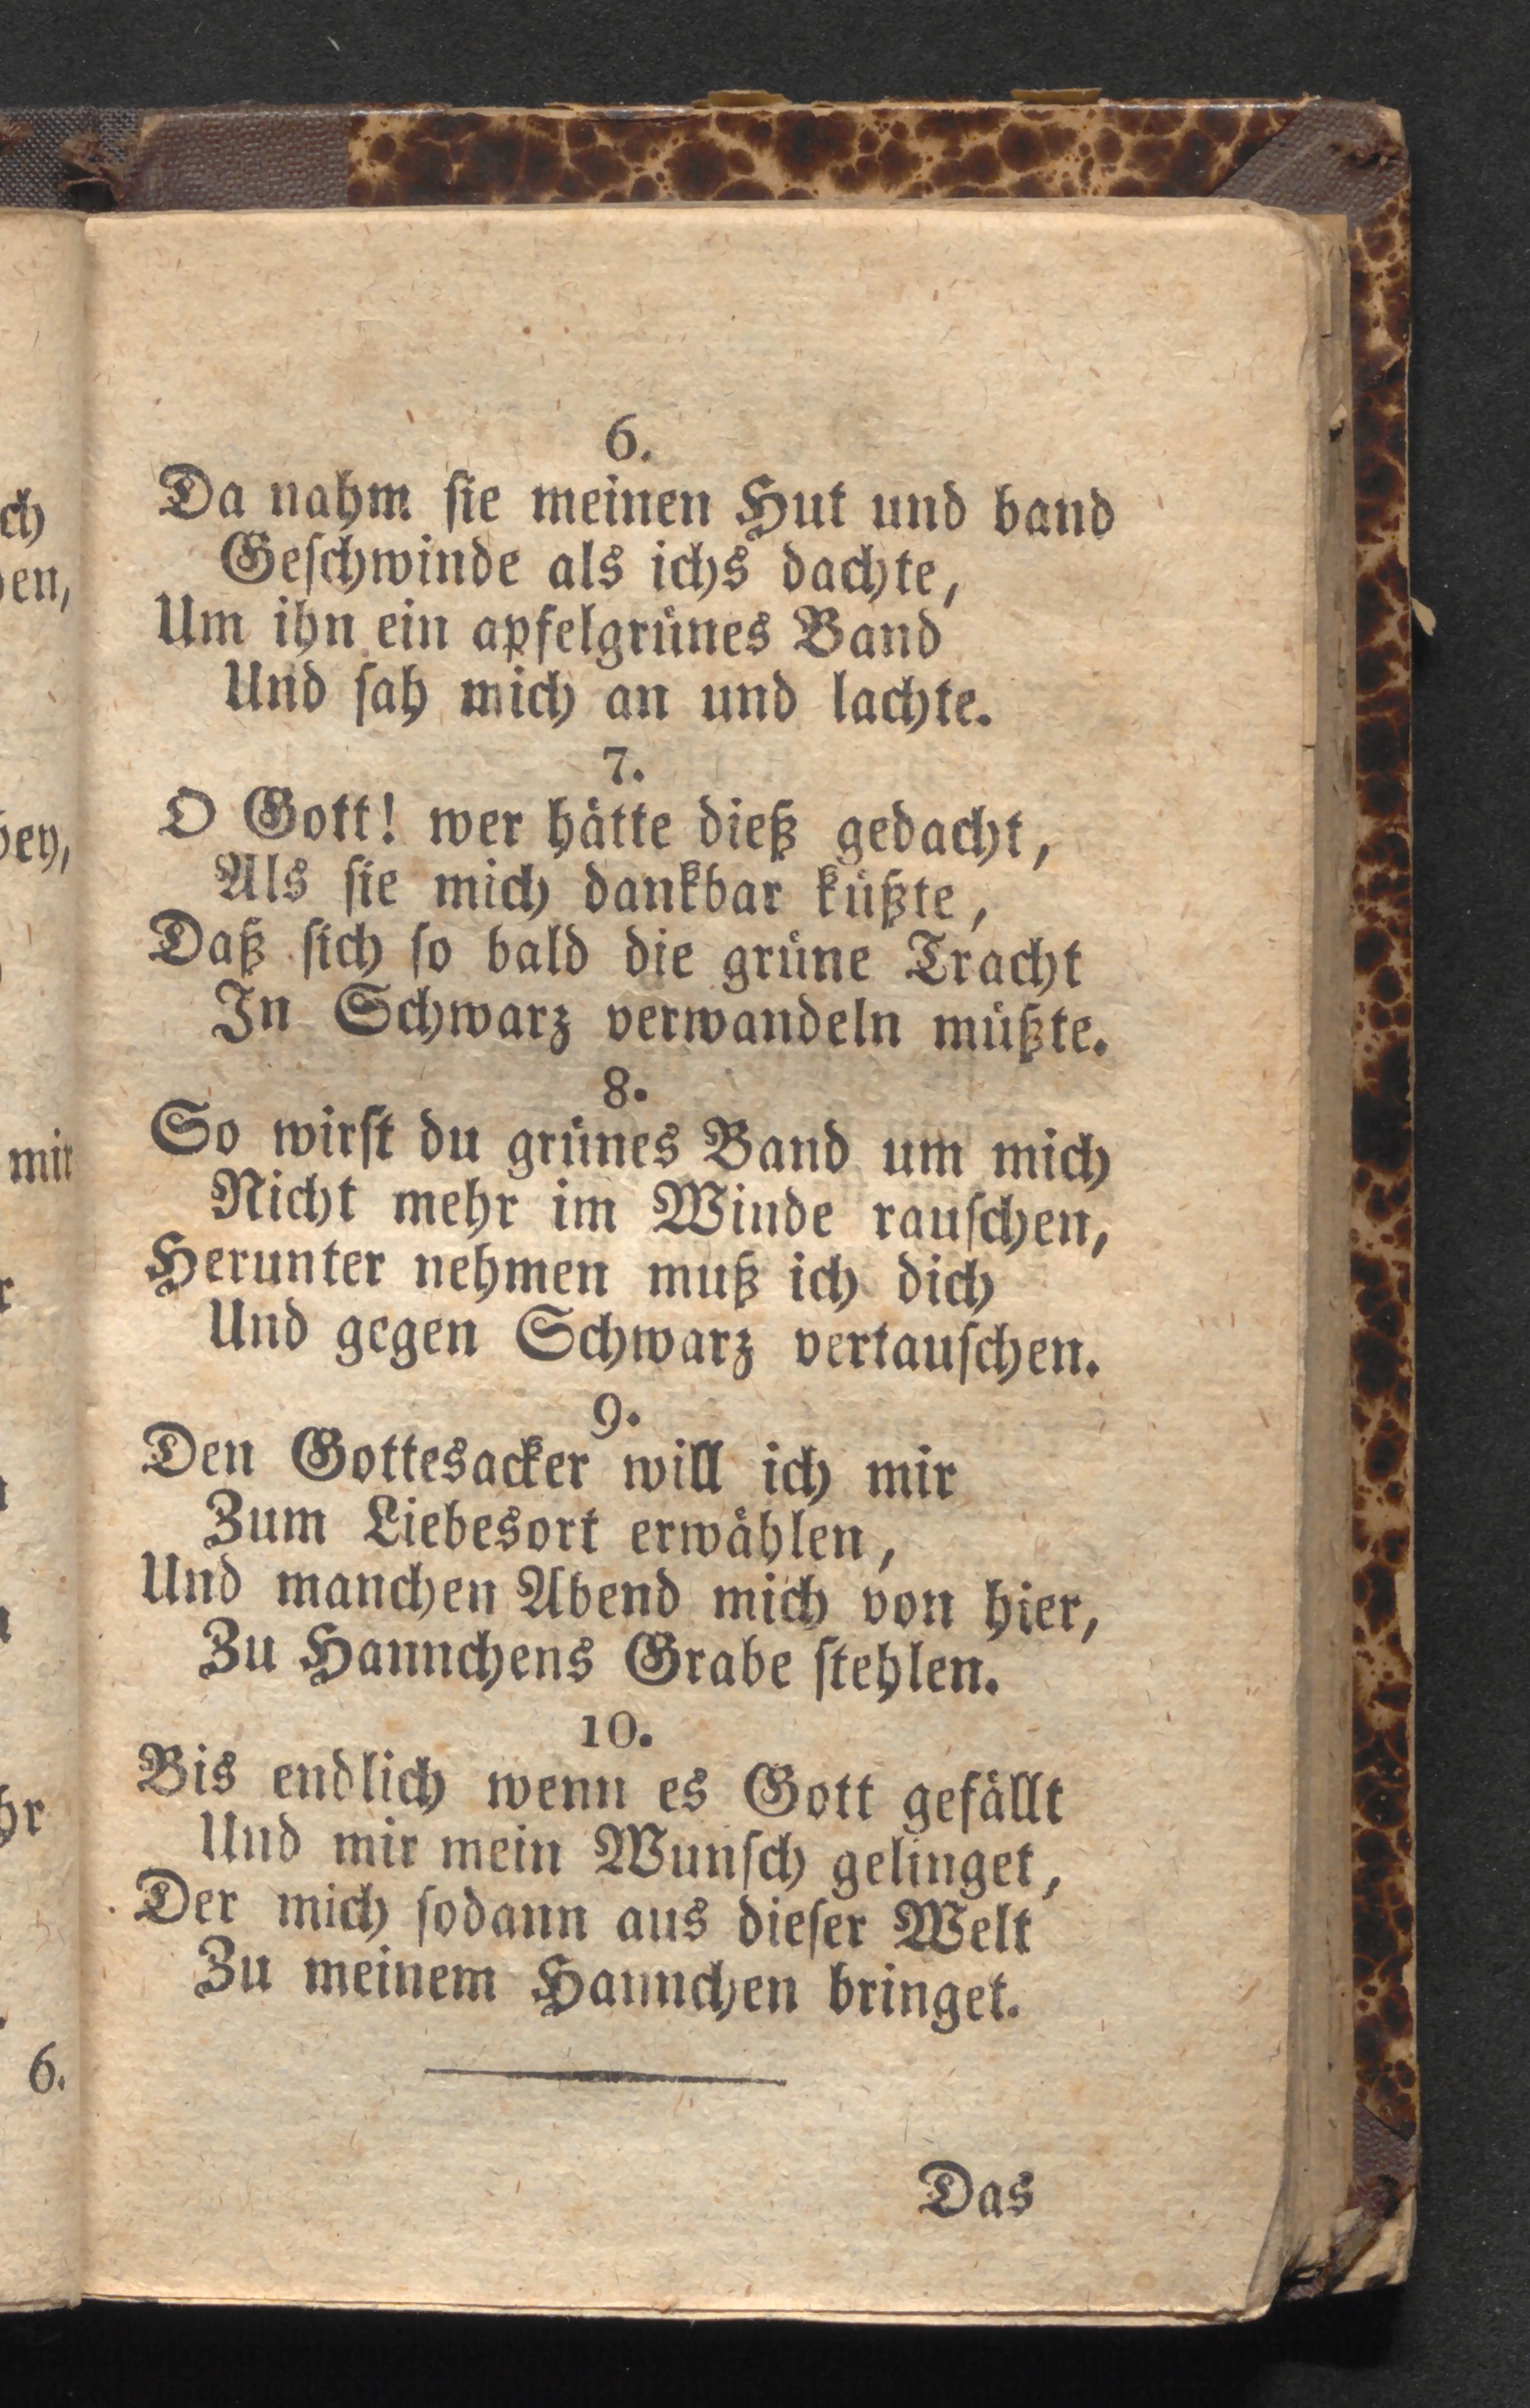 6.
Da nahm ſie meinen Hut und band
Geſchwinde als ichs dachte,
Um ihn ein apfelgrünes Band
Und ſah mich an und lachte.
7.
O Gott! wer hätte dieß gedacht,
Als ſie mich dankbar küßte,
Daß ſich ſo bald die grüne Tracht
In Schwarz verwandeln müßte.
8.
So wirſt du grünes Band um mich
Nicht mehr im Winde rauſchen,
Herunter nehmen muß ich dich
Und gegen Schwarz vertauſchen.
9.
Den Gottesacker will ich mir
Zum Liebesort erwählen,
Und manchen Abend mich von hier,
Zu Hannchens Grabe ſtehlen.
10.
Bis endlich wenn es Gott gefällt
Und mir mein Wunſch gelinget,
Der mich ſodann aus dieſer Welt
Zu meinem Hannchen bringet.
Das